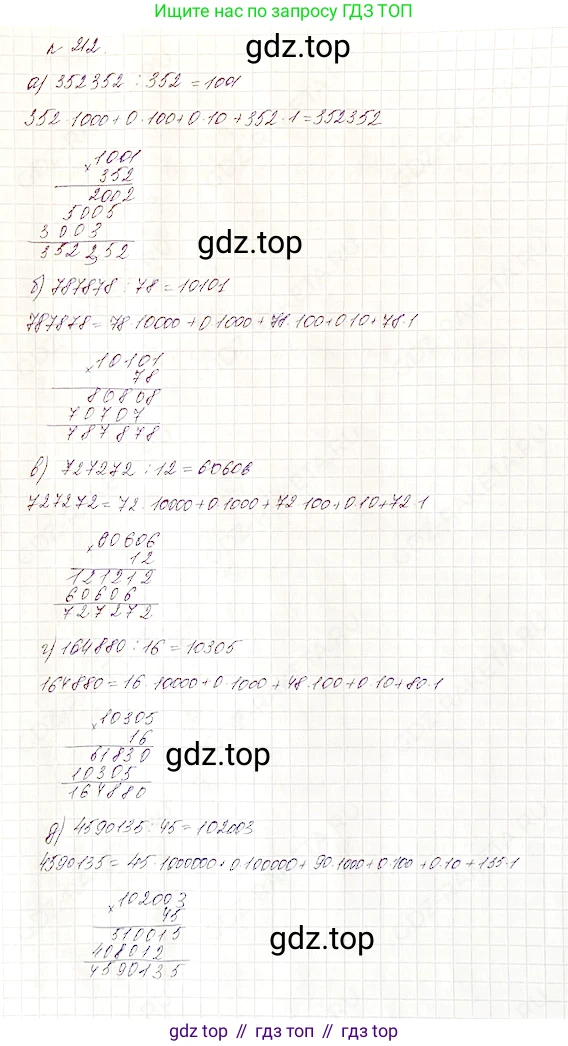 Ищите решения по запросу ГДЗ ТОП
gdz.top
№ 212.
а) 352352 : 352 = 1001
352 · 1000 + 0 · 100 + 0 · 10 + 352 · 1 = 352352
× 1001
352
2002
5005
3003
352252
gdz.top
б) 787878 : 78 = 10101
787878 = 78 · 10000 + 0 · 1000 + 78 · 100 + 0 · 10 + 78 · 1
× 10101
78
80808
70707
787878
в) 727272 : 12 = 60606
727272 = 72 · 10000 + 0 · 1000 + 72 · 100 + 0 · 10 + 72 · 1
× 60606
12
121212
60606
727272
г) 164880 : 16 = 10305
164880 = 16 · 10000 + 0 · 1000 + 48 · 100 + 0 · 10 + 80 · 1
× 10305
16
61830
10305
164880
gdz.top
д) 4590135 : 45 = 102003
4590135 = 45 · 1000000 + 0 · 100000 + 90 · 1000 + 0 · 100 + 0 · 10 + 135 · 1
× 102003
45
510015
408012
4590135
gdz.top
gdz.top // гдз топ // гдз.top